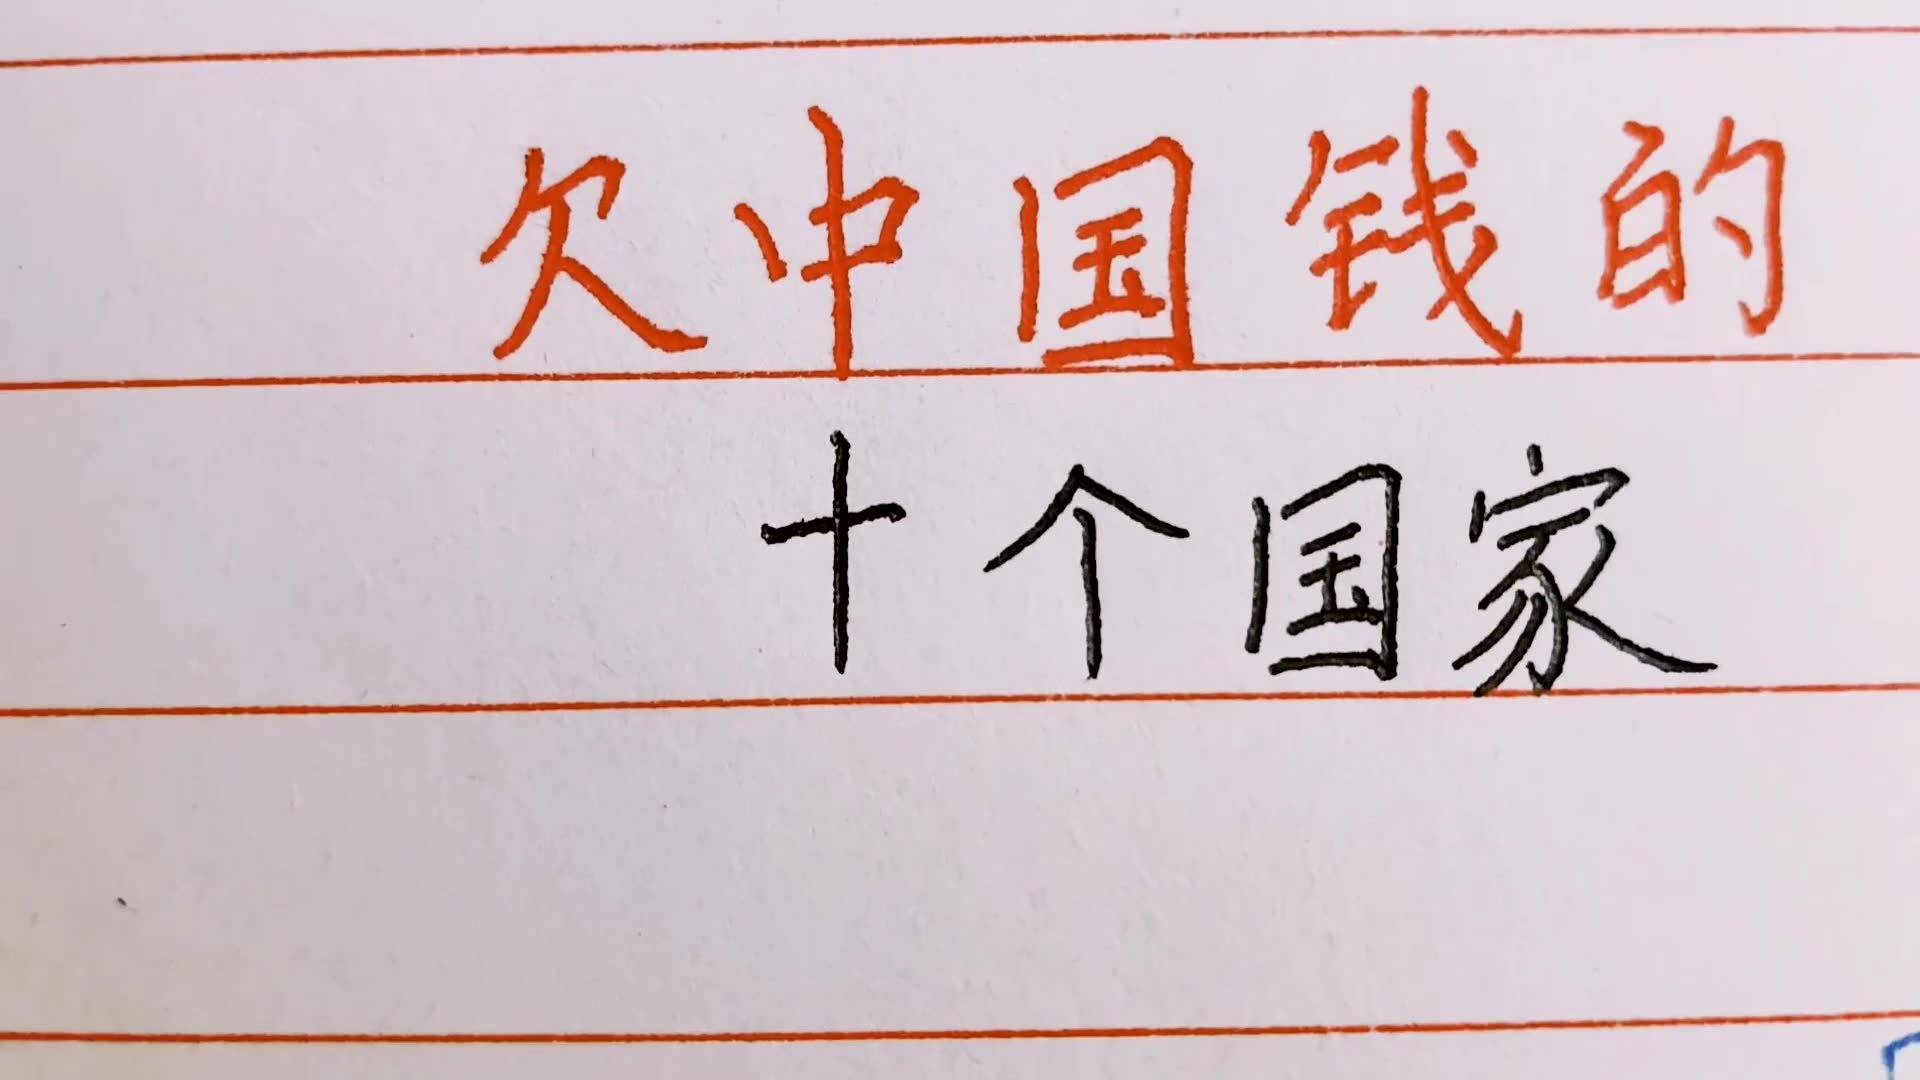 欠中国钱的
十个国家